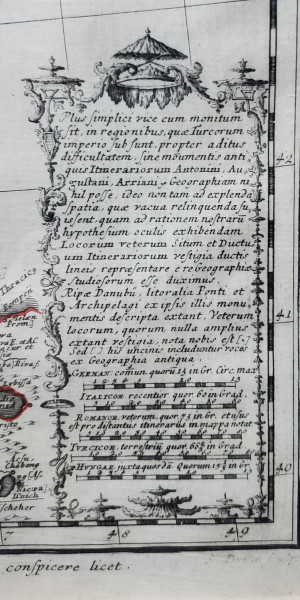 Plus ſimplici vice cum monitum
ſit, in regionibus, quæ Turcorum
imperio ſubſunt, propter aditus
difficultatem, ſine monumentis anti,
quis Itinerariorum Antonini, Au,
guſtani, Arriani Geographiam ni
hil poſſe. ideo non tam ad explenda
ſpatia, quæ vacua relinquenda fu,
iſſent, quam ad rationem noſtraru
hypotheſium oculis exhibendam
Locorum veterum Situm et Ductu
um Itinerariorum veſtigia ductis
lineis repræſentare e re Geographiæ
Studioſorum eſſe duximus.
Ripæ Danubii, litoralia Ponti et
Archipelagi ex ipſis illis monu
mentis deſcripta extant. Veterum
locorum, quorum nulla amplius
extant veſtigia, nota nobis eſt [-]
Sed [] his uncinis includuntur voces
ex Geographia antiqua.
GERMAN: comun. quoru 15 in Gr. Circ. max
ITALICOR recentior quor. 60 in Grad.
ROMANOR veterum quor. 75 in Gr. et uſus
est pro diſtantiis itinerariis in mappa notat.
TVRCICOR. terreſtriũ quor. 66 2/3 in Grad.
HVNGAR juxta quosdã Quorum 13 1/3 in Gr.
Thracius
42
41
40
47
48
49
conſpicere licet.